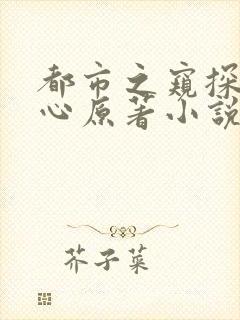 都市之窺探
心原著小說
芥子菜